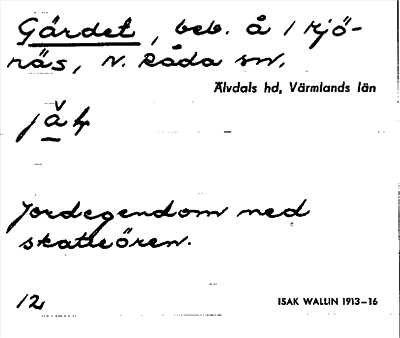 Gärdet, beb. å 1 Kjö-
näs, N. Råda sn.
Älvdals hd, Värmlands län
Jordegendom med
skatteören.
12
ISAK WALLIN 1913–16